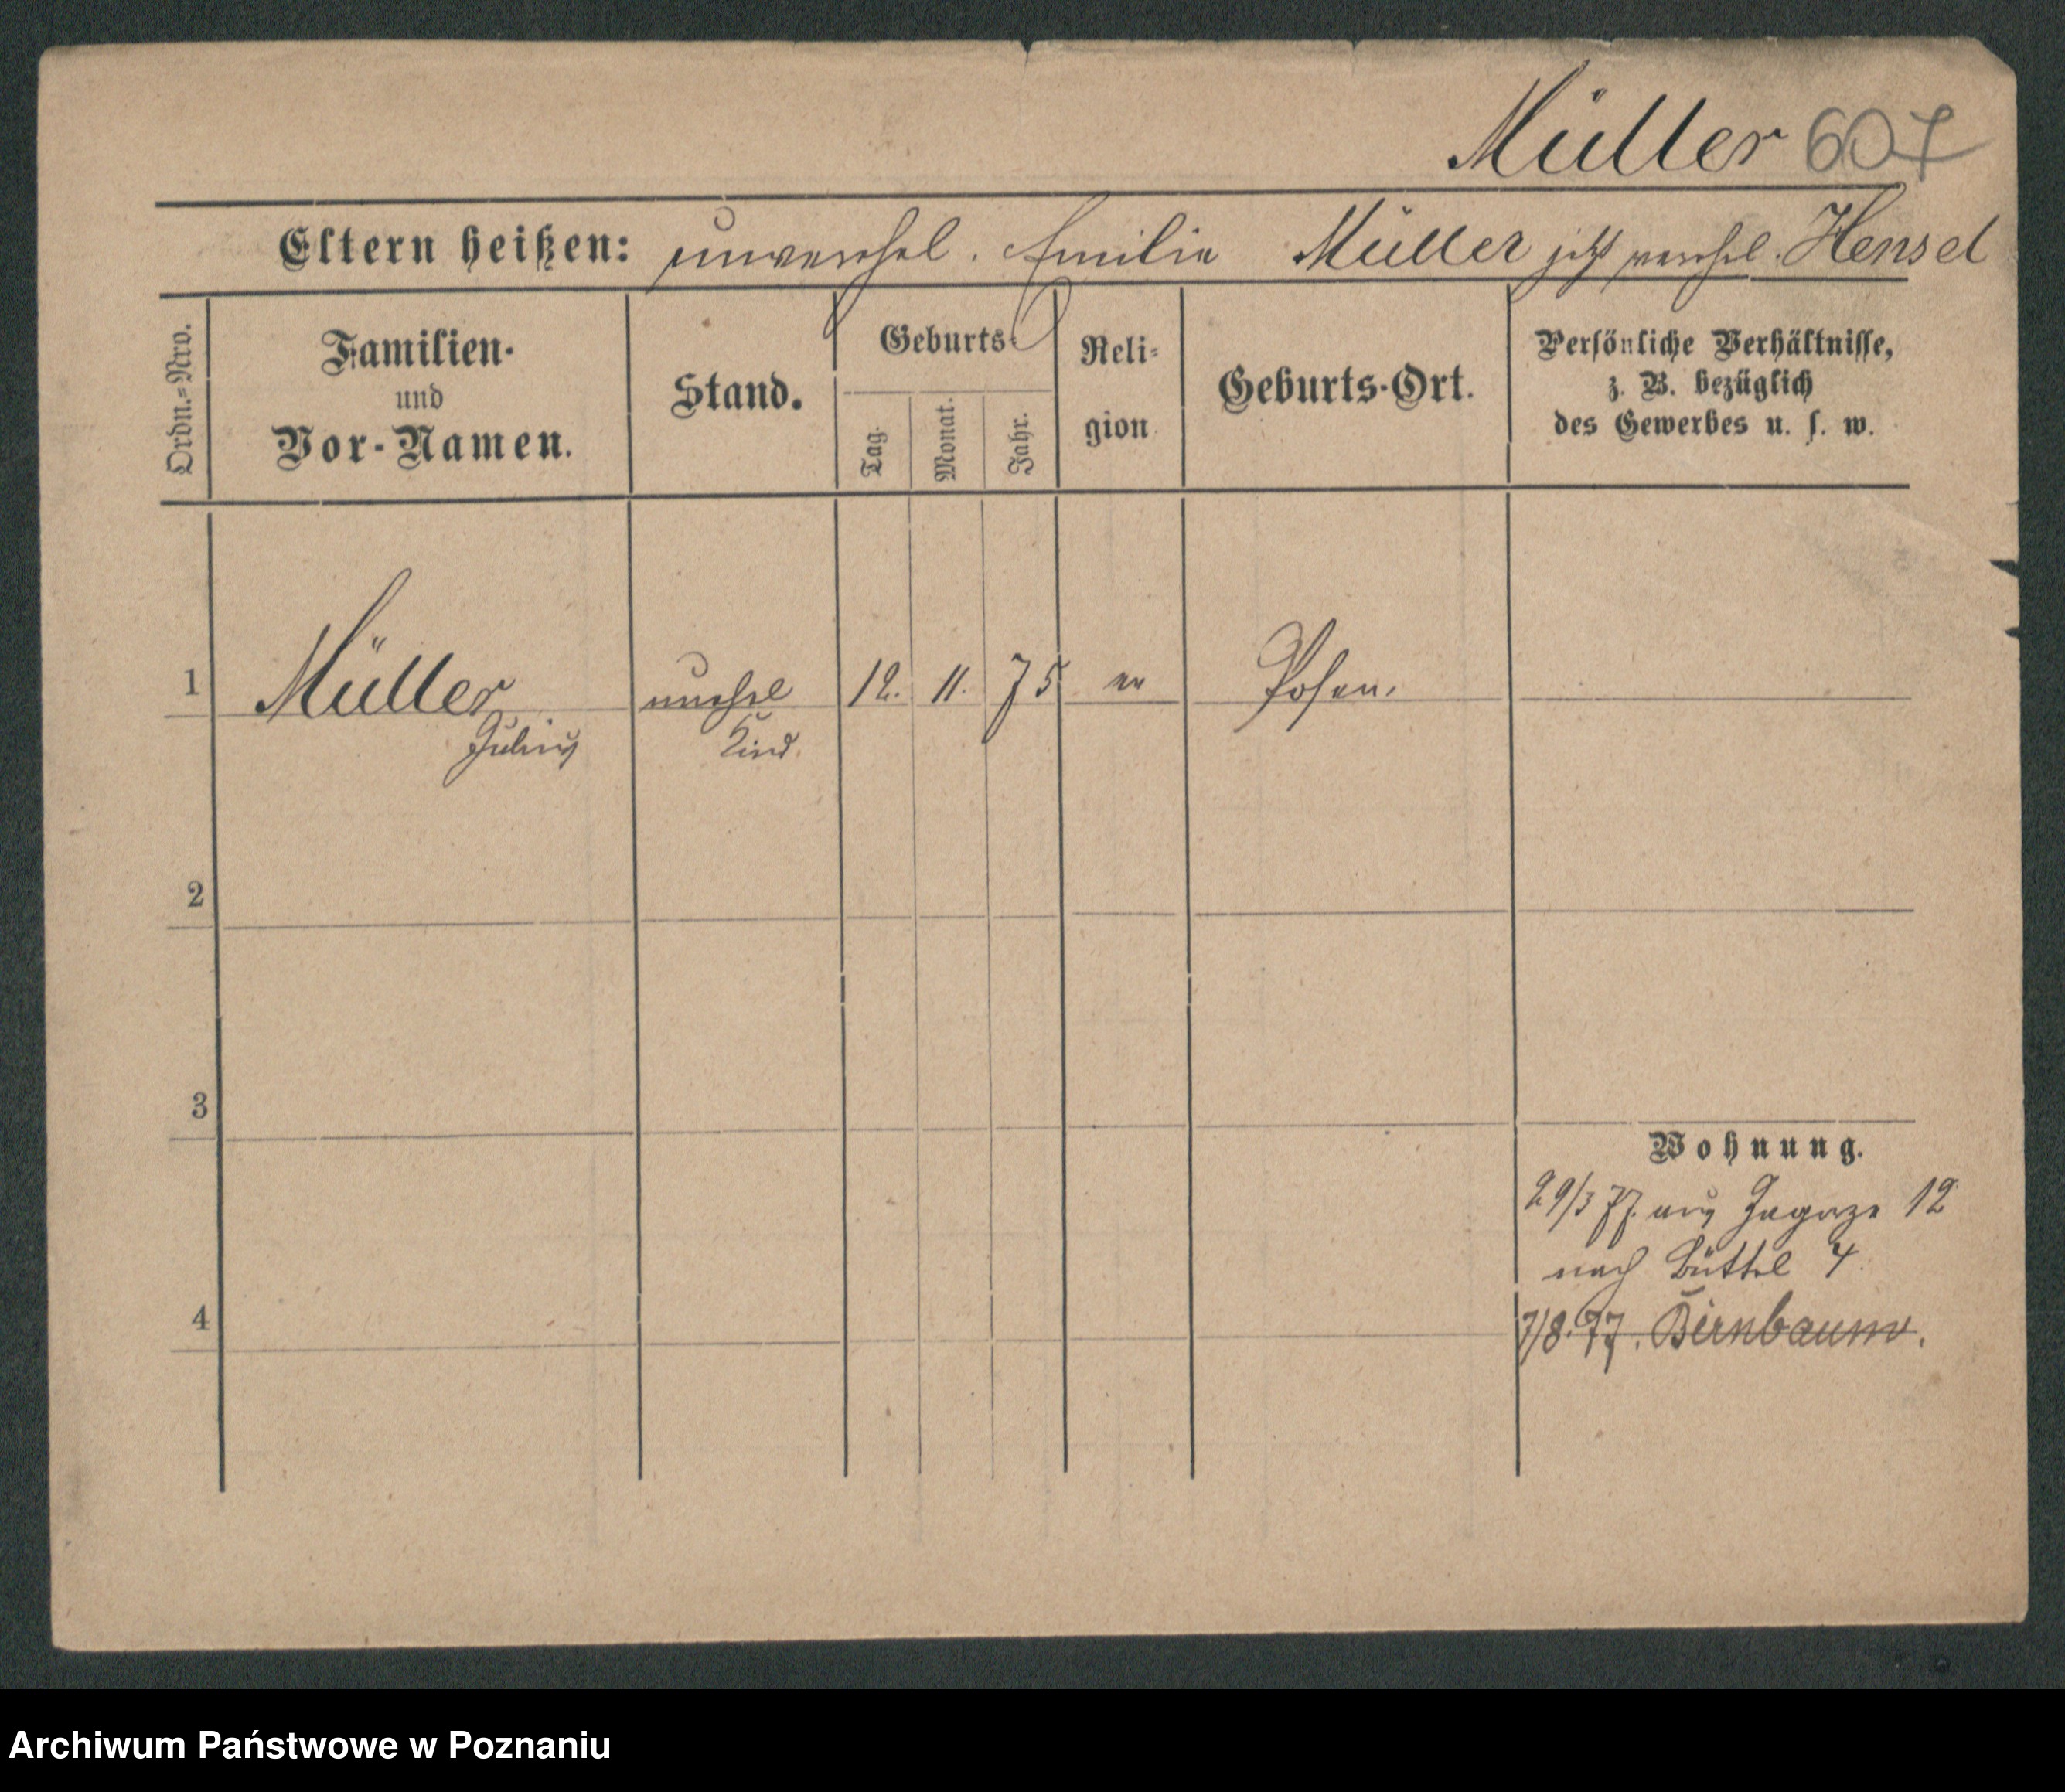 Müller 607
Eltern heißen: unverehel. Emilie Müller jetzt verehel. Hensel
Ordn.=Nro.
Familien-
und
Vor-Namen.
Stand.
Geburts-
Tag.
Monat.
Jahr.
Reli-
gion
Geburts-Ort.
Persönliche Verhältnisse,
z. B. bezüglich
des Gewerbes u. s. w.
1 Müller unehel 12. 11. 75 ev Posen.
Julius Kind.
2
3
Wohnung.
29/3 77. aus Zagorze 12
nach Büttel 4.
4
7/8. 77. Birnbaum.
Archiwum Państwowe w Poznaniu